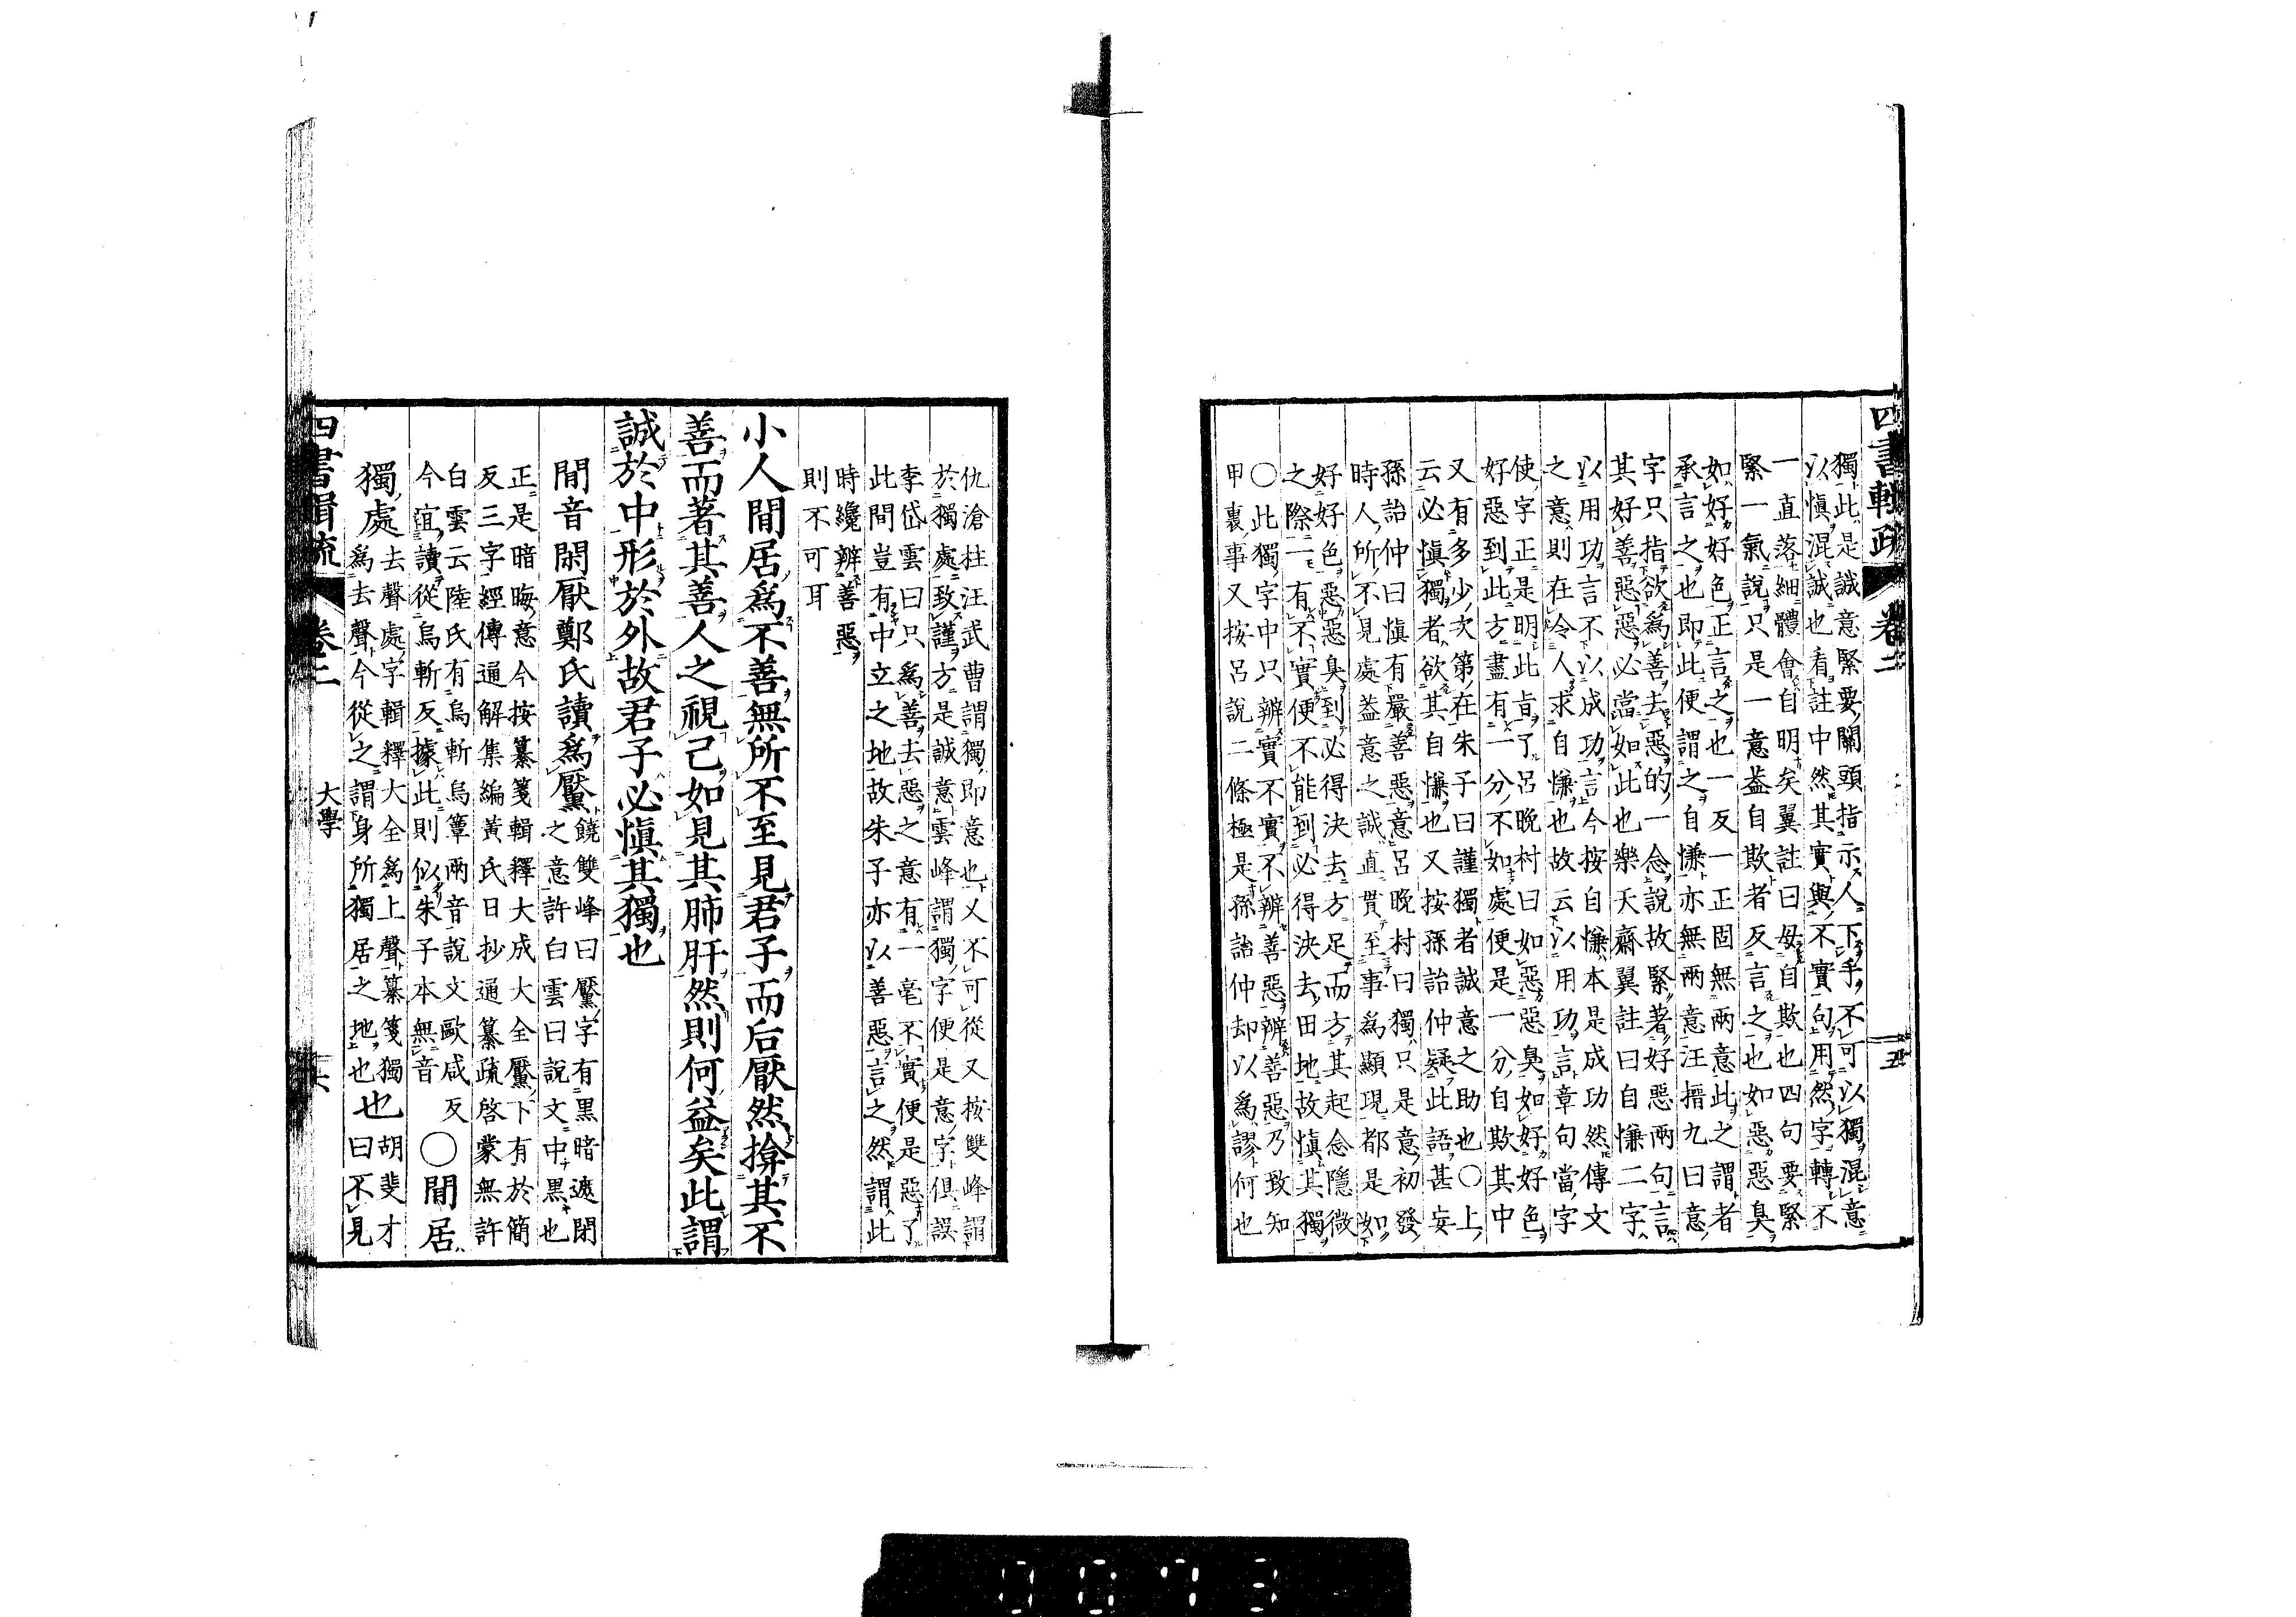 四書輯疏 卷二 五
獨此是誠意緊要關頭指示人下手不可以獨混意
以慎混誠也看註中然其實與不實句用然字轉不
一直落細體會自明矣翼註曰毋自欺也四句要緊
緊一氣說只是一意蓋自欺者反言之也如惡惡臭
如好好色正言之也一反一正固無兩意此之謂者
承言之也即此便謂之自慊亦無兩意汪搢九曰意
字只指欲為善去惡的一念說故緊著好惡兩句言
其好善惡惡必當如此也樂天齋翼註曰自慊二字
以用功言不以成功言今按自慊本是成功然傳文
之意則在令人求自慊也故云以用功言章句當字
使字正是明此旨了呂晚村曰如惡惡臭如好好色
好惡到此方盡有一分不如處便是一分自欺其中
又有多少次第在朱子曰謹獨者誠意之助也○上
云必慎獨者欲其自慊也又按孫詒仲疑此語甚妄
孫詒仲曰慎有嚴善惡意呂晚村曰獨只是意初發
時人所不見處蓋意之誠直貫至事為顯現都是如
好好色惡惡臭到必得決去方足而方其起念隱微
之際一有不實便不能到必得決去田地故慎其獨
○此獨字中只辨實不實不辨善惡辨善惡乃致知
甲裏事又按呂說二條極是孫詒仲却以為謬何也
仇滄柱汪武曹謂獨即意也又不可從又按雙峰謂
於獨處致謹方是誠意雲峰謂獨字便是意字俱誤
李岱雲曰只為善去惡之意有一毫不實便是惡了
此間豈有中立之地故朱子亦以善惡言之然謂此
時纔辨善惡
則不可耳
小人閒居為不善無所不至見君子而后厭然揜其不
善而著其善人之視己如見其肺肝然則何益矣此謂
誠於中形於外故君子必慎其獨也
閒音閑厭鄭氏讀為黶
饒雙峰曰黶字有黑暗遮閉
之意許白雲曰說文中黑也
正是暗晦意今按纂箋輯釋大成大全黶下有於簡
反三字經傳通解集編黃氏日抄通纂疏啓蒙無許
白雲云陸氏有烏斬烏簟兩音說文歐咸反
今誼讀從烏斬反據此則似朱子本無音
○閒居
獨處
去聲處字輯釋大全為上聲纂箋獨
為去聲今從之謂身所獨居之地也
也
胡斐才
曰不見
四書輯疏 卷二 大學 六
0073